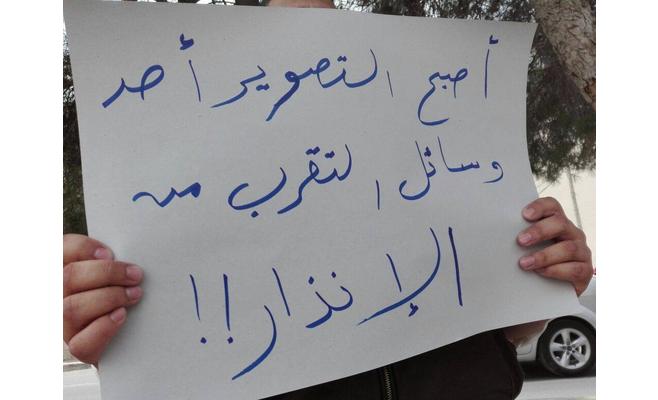 أصبح التصوير أحد
وسائل التقرب من
الإنذار!!